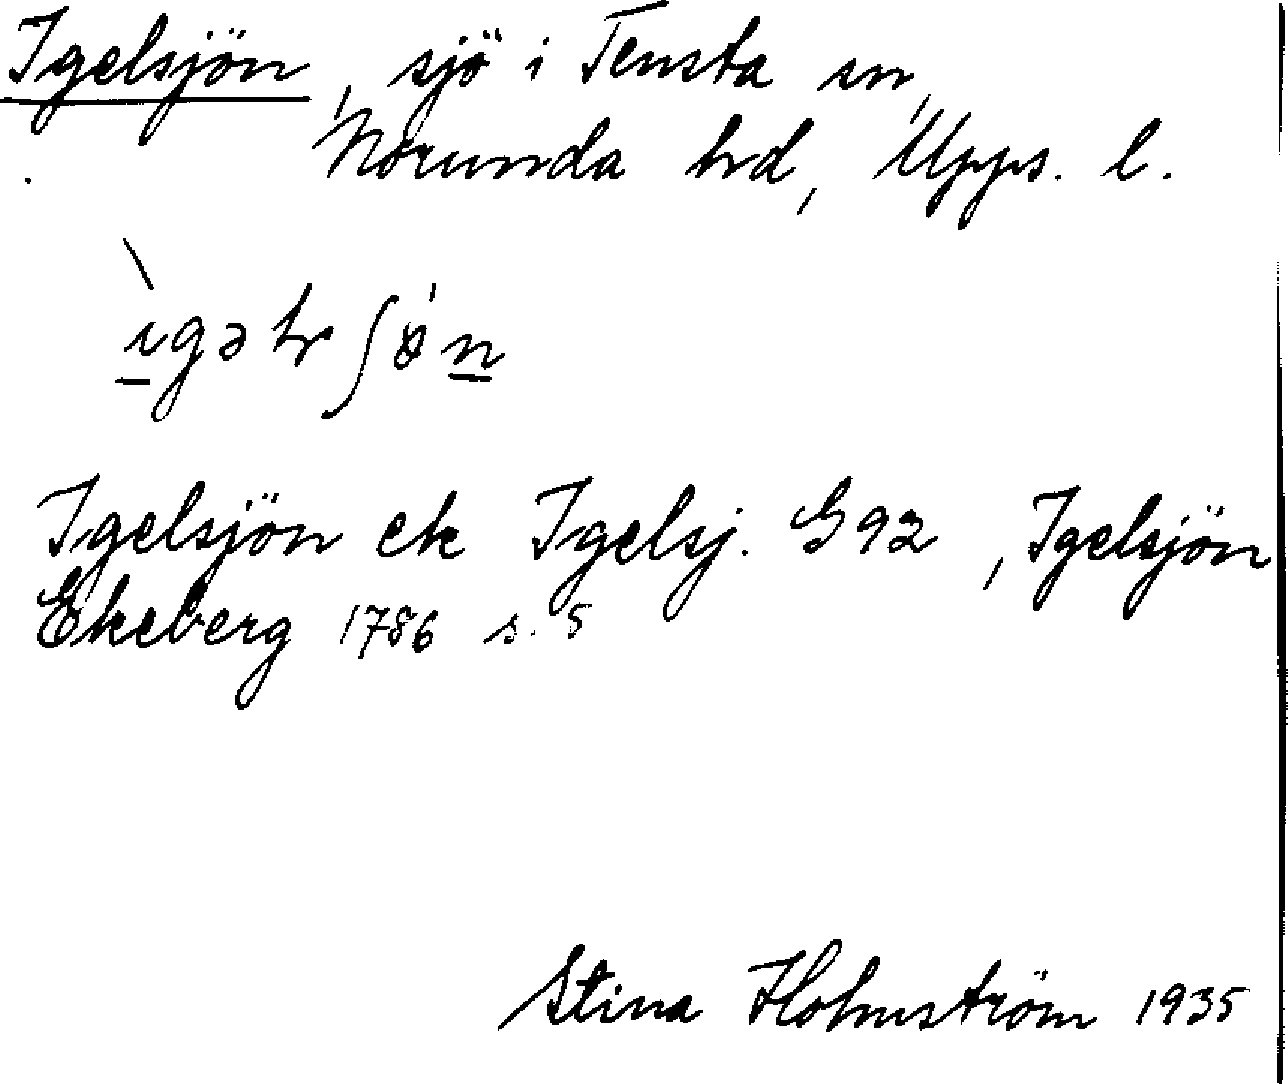 Igelsjön, sjö i Tensta sn,
Norunda hd, Upps. l.
Igelsjön ek Igelsj. G92, Igelsjön
Ekeberg 1786 s. 5
Stina Holmström 1935